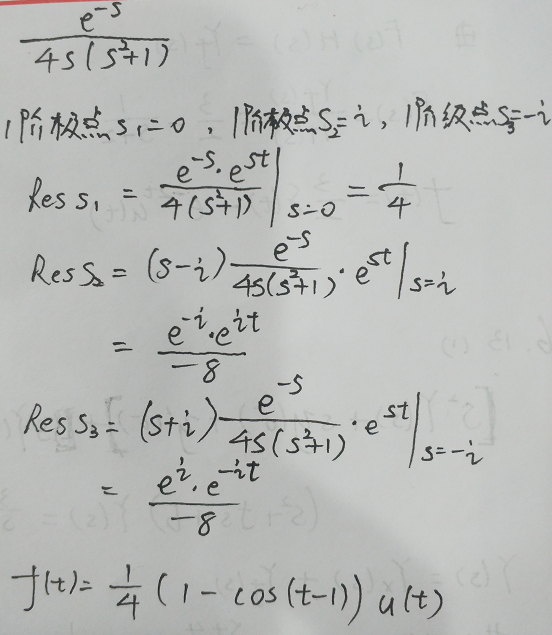 e^{-s} / 4s(s²+1)
1阶极点 s₁=0 , 1阶极点S₂=i , 1阶级点S₃=-i
Res s₁ = e^{-s}·e^{st} / 4(s²+1) |_{s=0} = 1/4
Res S₂ = (s-i) e^{-s} / 4s(s²+1) · e^{st} |_{s=i}
= e^{-i}·e^{it} / -8
Res S₃ = (s+i) e^{-s} / 4s(s²+1) · e^{st} |_{s=-i}
= e^{i}·e^{-it} / -8
f(t) = 1/4 (1 - cos(t-1)) u(t)